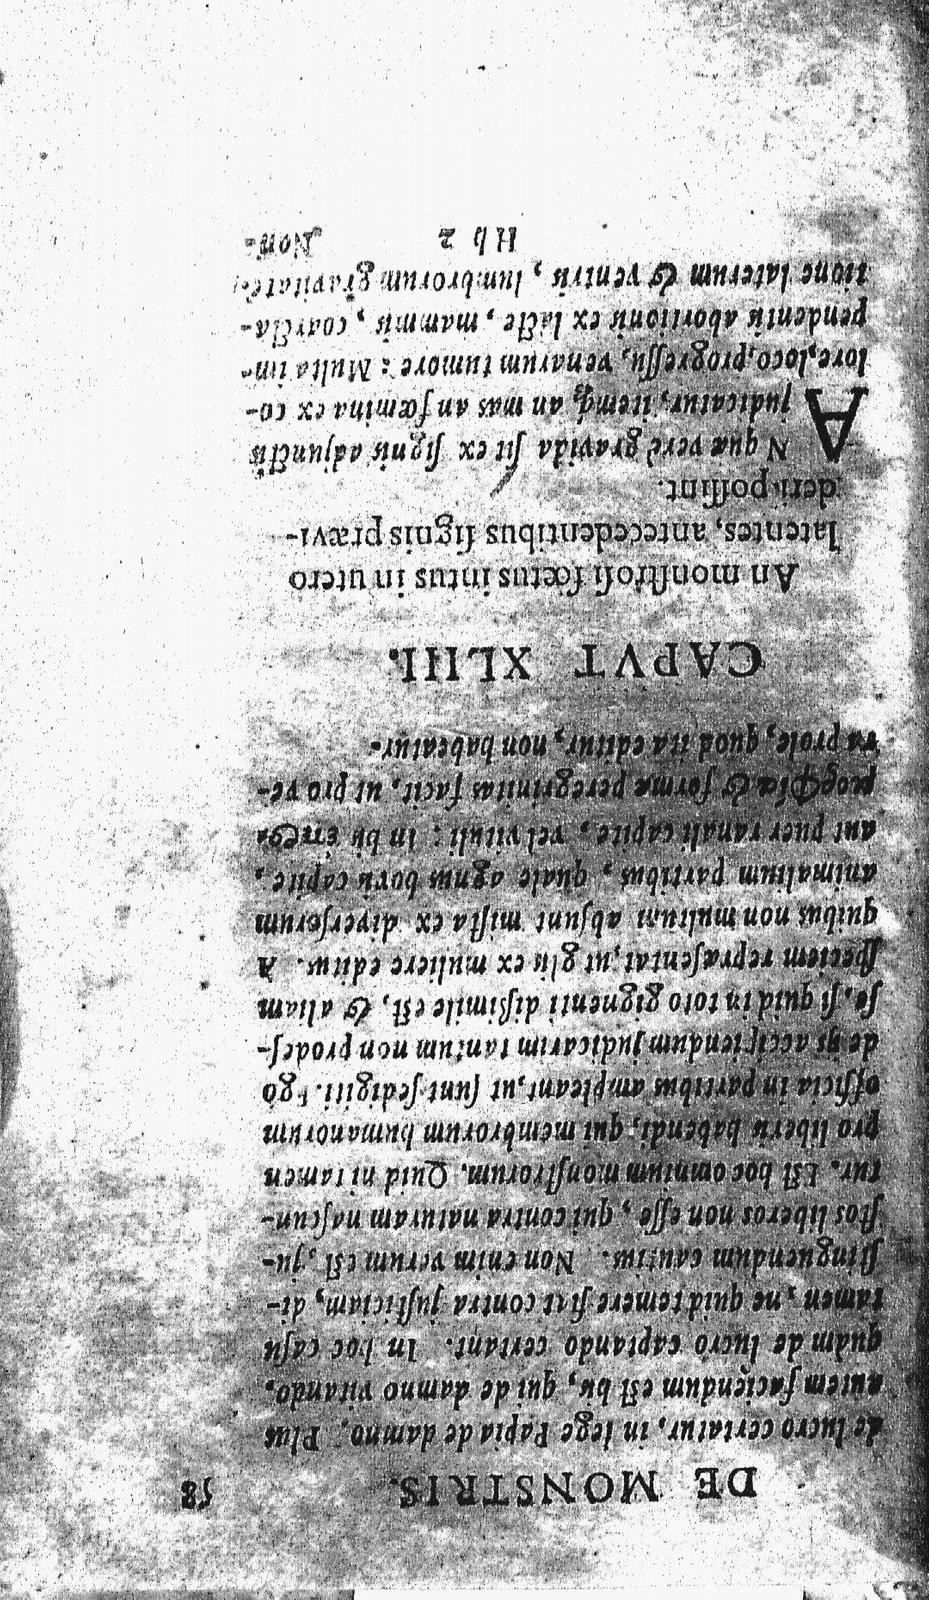 DE MONSTRIS. 58
de lucro certatur, in lege Papia de damno. Plus
autem faciendum est his, qui de damno vitando,
quàm de lucro captando certant. In hoc casu
tamen, ne quid temere fiat contra justiciam, di-
stinguendum cautius. Non enim verum est, ju-
stos liberos non esse, qui contra naturam nascun-
tur. Est hoc omnium monstrorum. Quid ni tamen
pro liberis habendi, qui membrorum humanorum
officia in partibus ampleant, ut sunt sedigiti.
de ijs accipiendum judicarim tantum non prodes-
se, si quid in toto gignenti dissimile est, & aliam
speciem repræsentat, ut glis ex muliere editus. A
quibus non multum absunt mista ex diversorum
animalium partibus, quale agnus bovis capite,
aut puer ranali capite, vel vituli: in his
& formæ peregrinitas facit, ut pro ve-
ra prole, quod ita editur, non habeatur.
CAPVT XLIII.
An monstrosi fœtus intus in utero
latentes, antecedentibus signis prævi-
deri possint.
AN quæ verè gravida sit ex signis adjunctis
judicatur, itemq; an mas an fœmina ex co-
lore, loco, progressu, venarum tumore: Multa im-
pendentis abortionis ex lacte, mammis, coarcta-
tione laterum & ventris, lumbrorum gravitate.
Hh 2 Non-